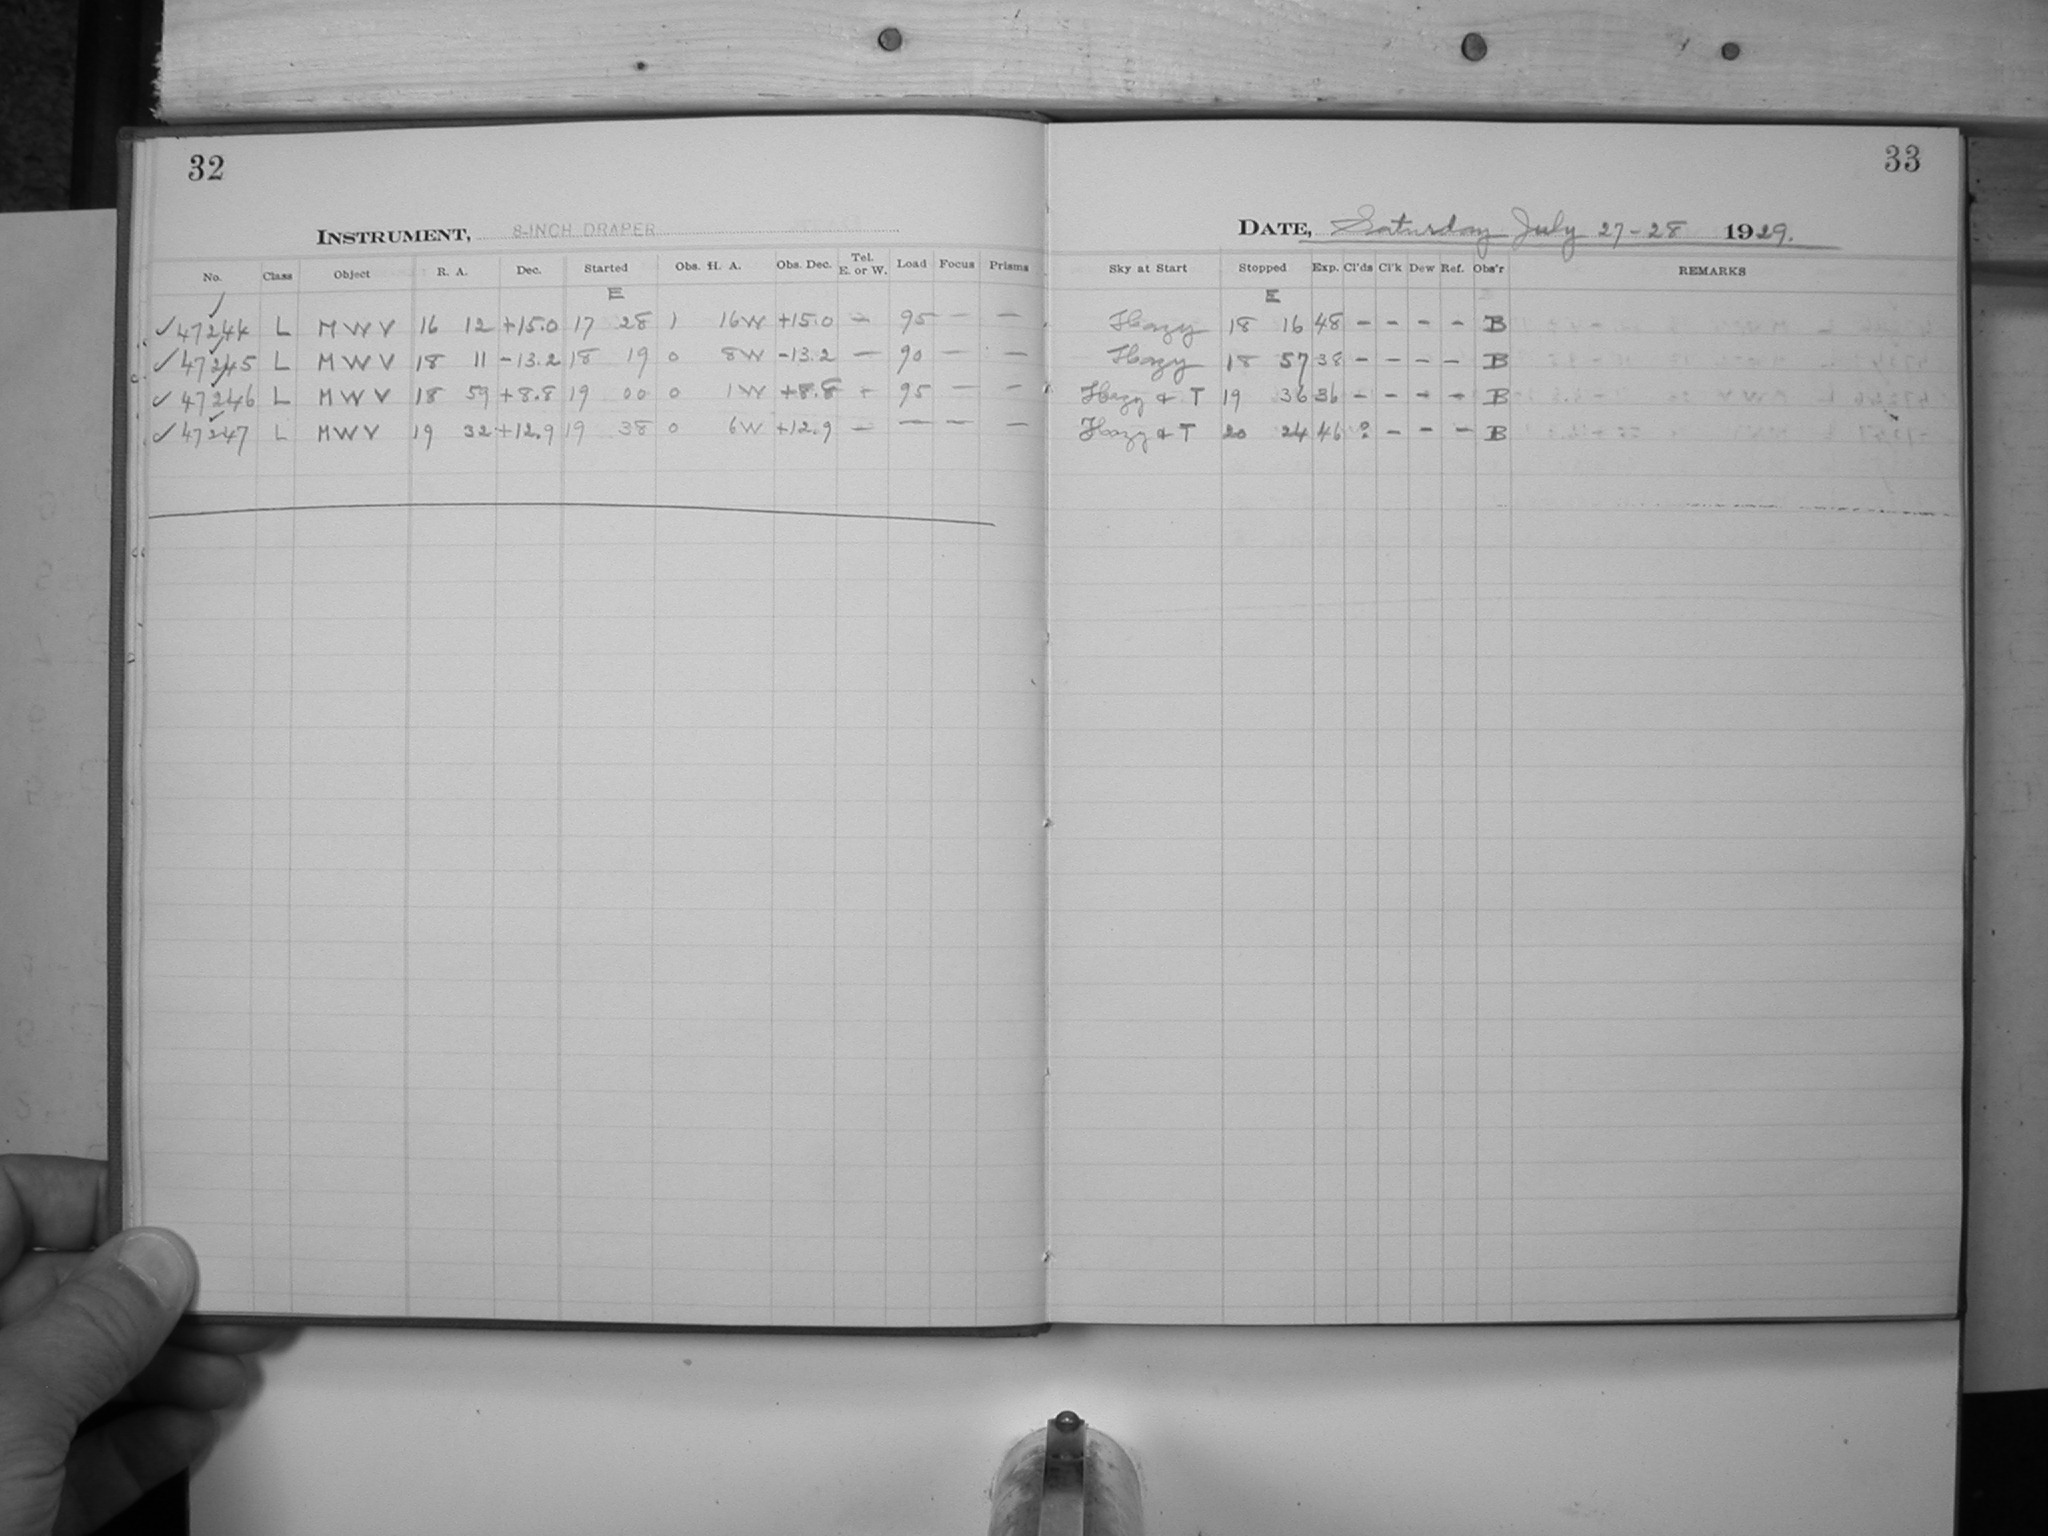 32
INSTRUMENT, 8-INCH DRAPER
No. Class Object R. A. Dec. Started Obs. H. A. Obs. Dec. Tel. E. or W. Load Focus Prisms
E
✓ 47244 L M W V 16 12 +15.0 17 28 1 16W +15.0 — 95 — —
✓ 47245 L M W V 18 11 -13.2 18 19 0 8W -13.2 — 90 — —
✓ 47246 L M W V 18 59 +8.8 19 00 0 1W +8.8 - 95 — —
✓ 47247 L M W V 19 32 +12.9 19 38 0 6W +12.9 — — — —
33
DATE, Saturday July 27-28 1929.
Sky at Start Stopped Exp. Cl'ds Cl'k Dew Ref. Obs'r REMARKS
E
Hazy 18 16 48 - - - - B
Hazy 18 57 38 - - - - B
Hazy & T 19 36 36 - - - - B
Hazy & T 20 24 46 ? - - - B